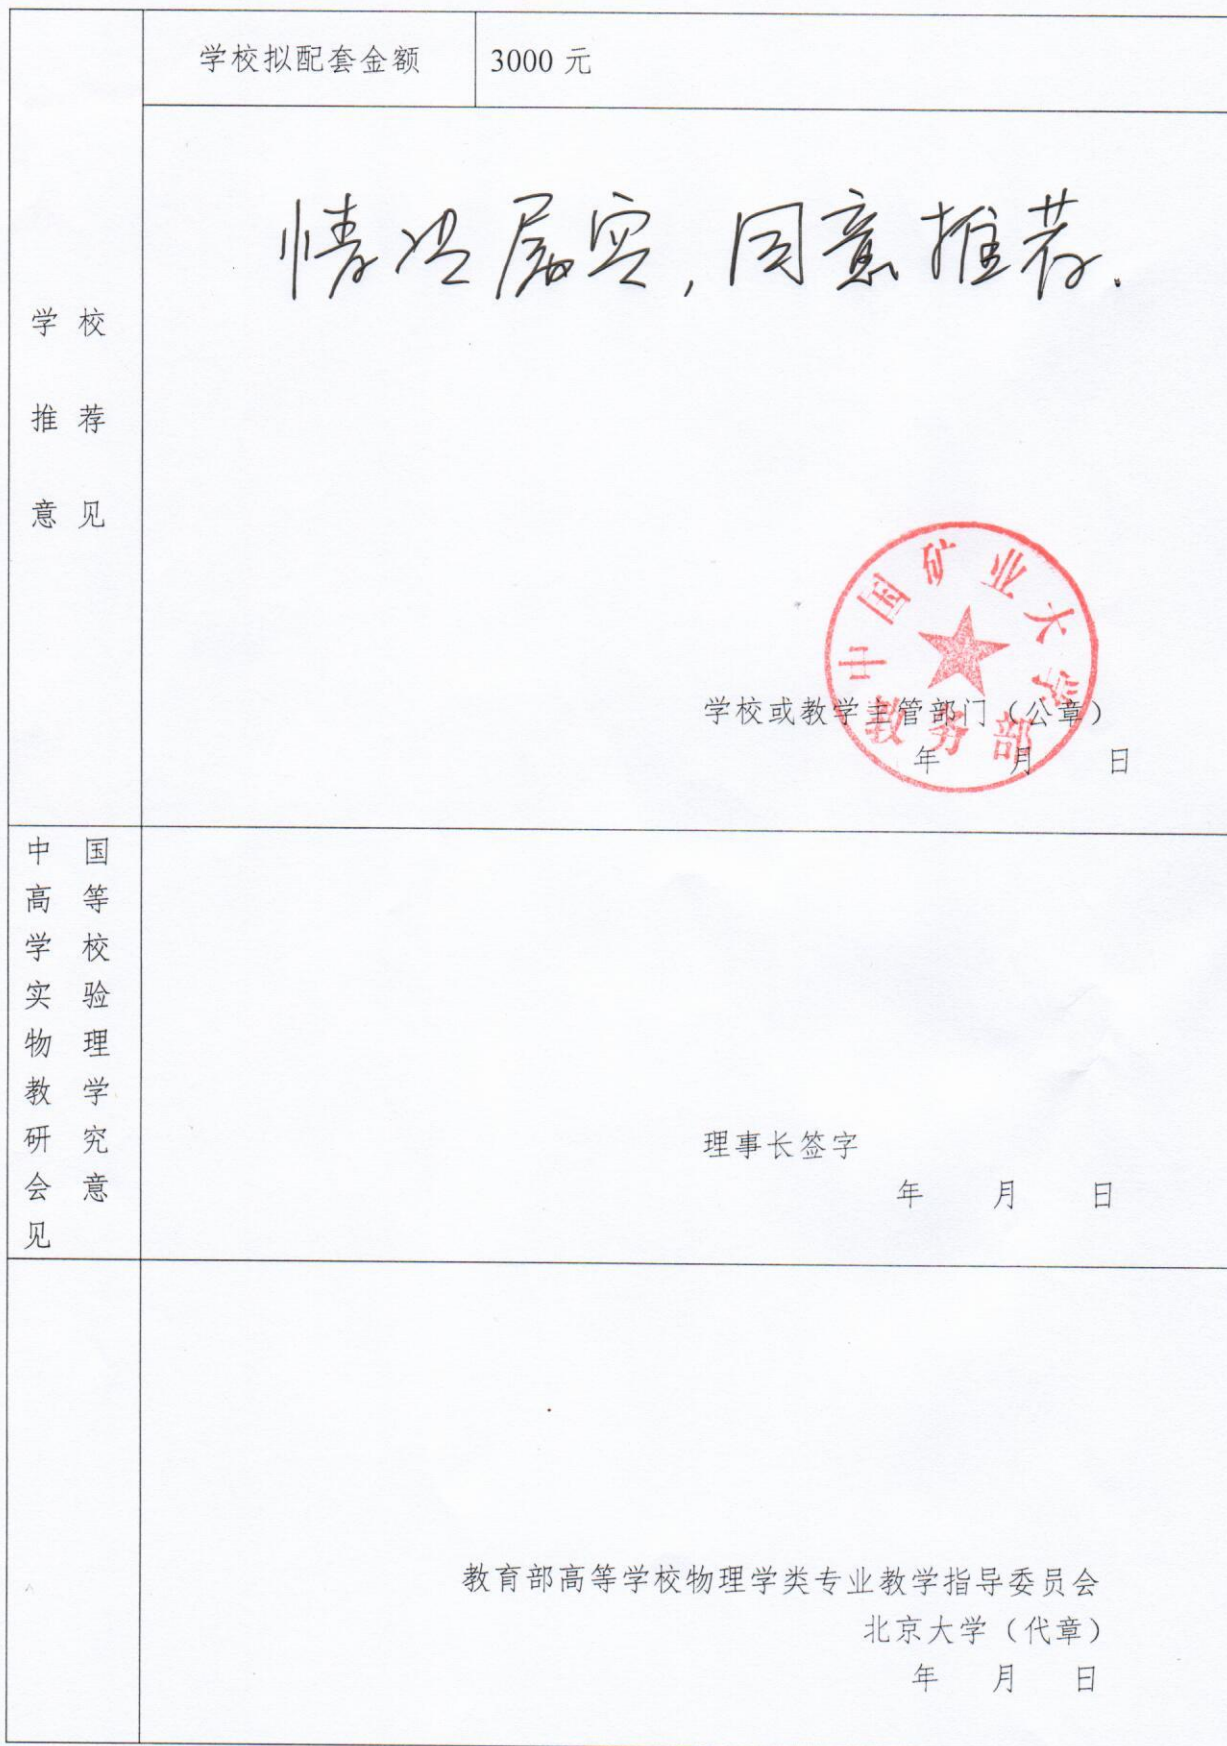 学校拟配套金额 3000 元
情况属实,同意推荐.
学校
推荐
意见
中国矿业大学
教务部
学校或教学主管部门（公章）
年 月 日
中国
高等
学校
实验
物理
教学
研究
会意
见
理事长签字
年 月 日
教育部高等学校物理学类专业教学指导委员会
北京大学（代章）
年 月 日